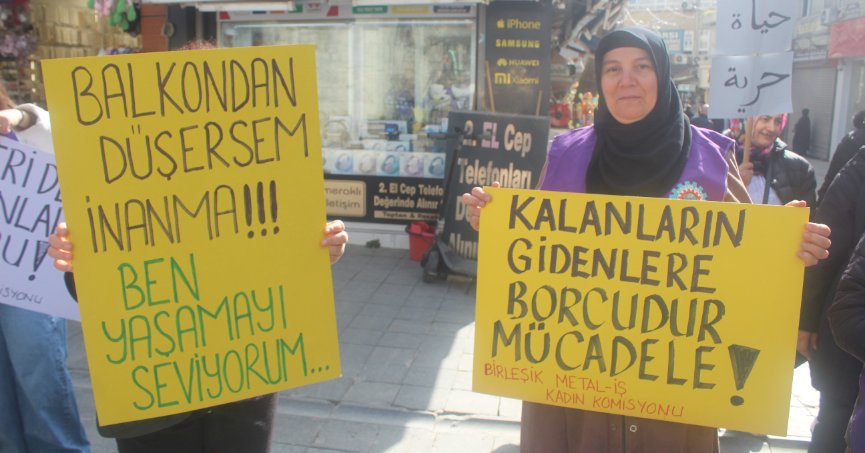 BALKONDAN
DÜŞERSEM
İNANMA!!!
BEN
YAŞAMAYI
SEVİYORUM...
KALANLARIN
GİDENLERE
BORCUDUR
MÜCADELE!
BİRLEŞİK METAL-İŞ
KADIN KOMİSYONU
iPhone
SAMSUNG
HUAWEI
xiaomi
2. EL Cep
Telefonları
Değerinde
Alınır
2. EL CEP
Telefonları
Değerinde Alınır
حياة
حرية